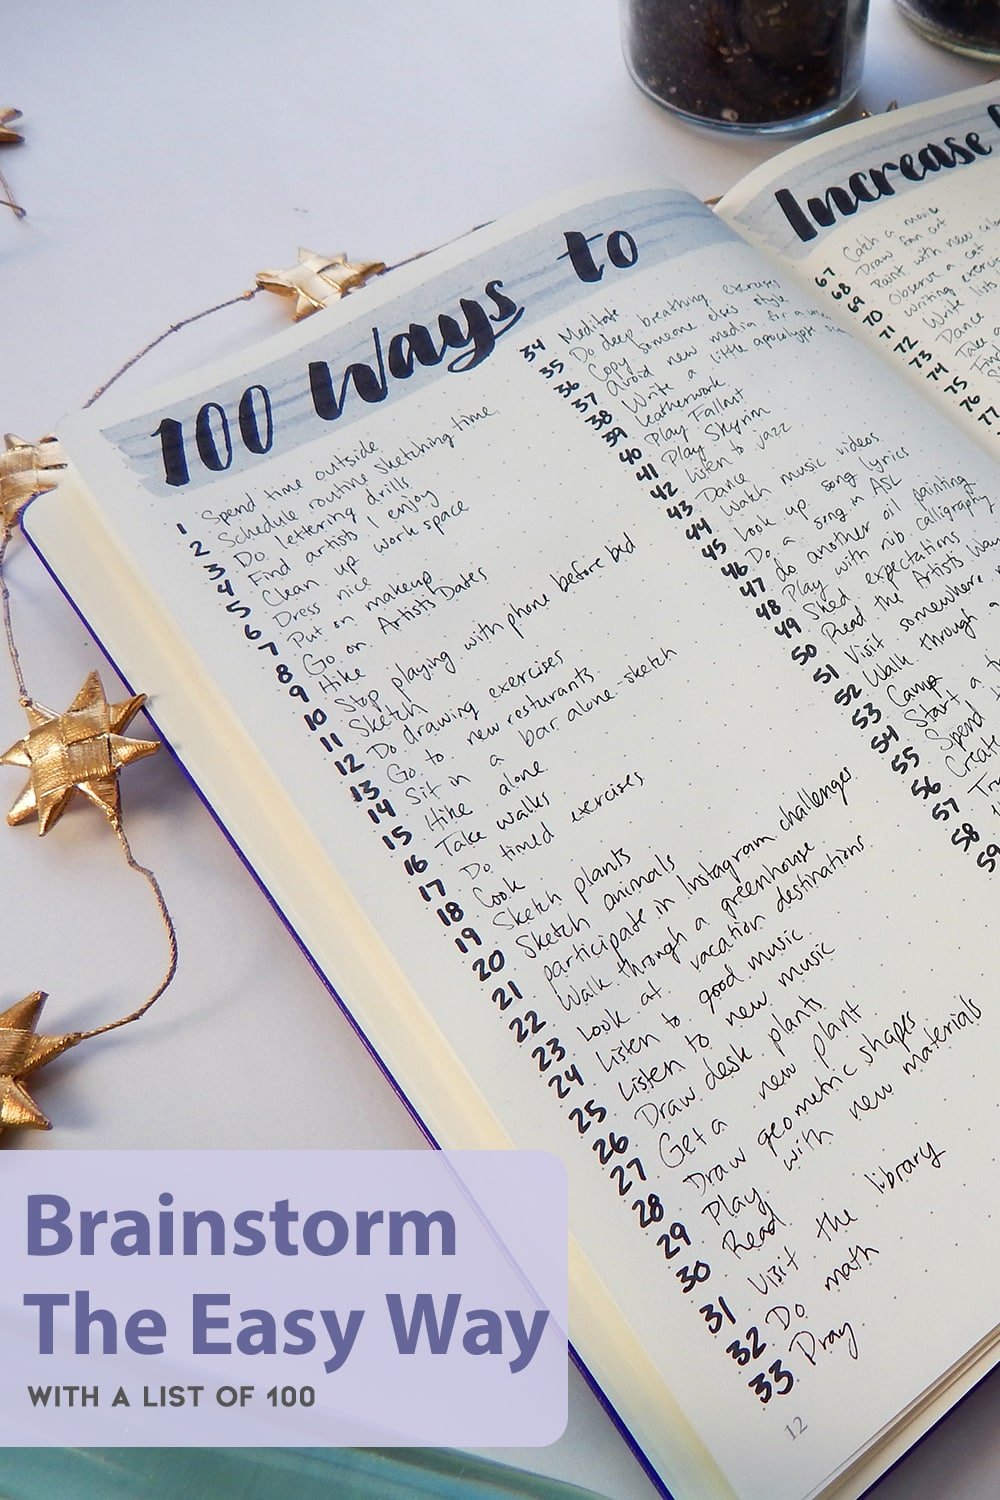 100 Ways to
1 Spend time outside
2 Schedule routine sketching time.
3 Do lettering drills
4 Find artists I enjoy
5 Clean up work space
6 Dress nice
7 Put on makeup
8 Go on Artists Dates
9 Hike
10 Stop playing with phone before bed
11 Sketch
12 Do drawing exercises
13 Go to new resturants
14 Sit in a bar alone-sketch
15 Hike alone
16 Take walks
17 Do timed exercises
18 Cook
19 Sketch plants
20 Sketch animals
21 participate in Instagram challenges
22 Walk through a greenhouse
23 Look at vacation destinations
24 Listen to good music
25 Listen to new music
26 Draw desk plants
27 Get a new plant
28 Draw geometric shapes
29 Play with new materials
30 Read
31 Visit the library
32 Do math
33 Pray
34 Meditate
35 Do deep breathing exercises
36 Copy someone elses style
37 Avoid new media for a
38 Write a little apocalypse
39 leatherwork
40 Play Fallout
41 Play Skyrim
42 Listen to jazz
43 Dance
44 Watch music videos
45 Look up song lyrics
46 Do a song in ASL
47 do another oil painting
48 Play with nib calligraphy
49 Shed expectations
50 Read the Artists Way
51 Visit somewhere
52 Walk through a
53 Camp
54 Start a
55 Spend
56 Create
57
58
59
12
Increase
67 Catch a movie
68 Draw fan art
69 Paint with new
70 Observe a cat
71 Writing
72 Write lists
73 Dance
74 Take a
75
76
77
Brainstorm
The Easy Way
WITH A LIST OF 100